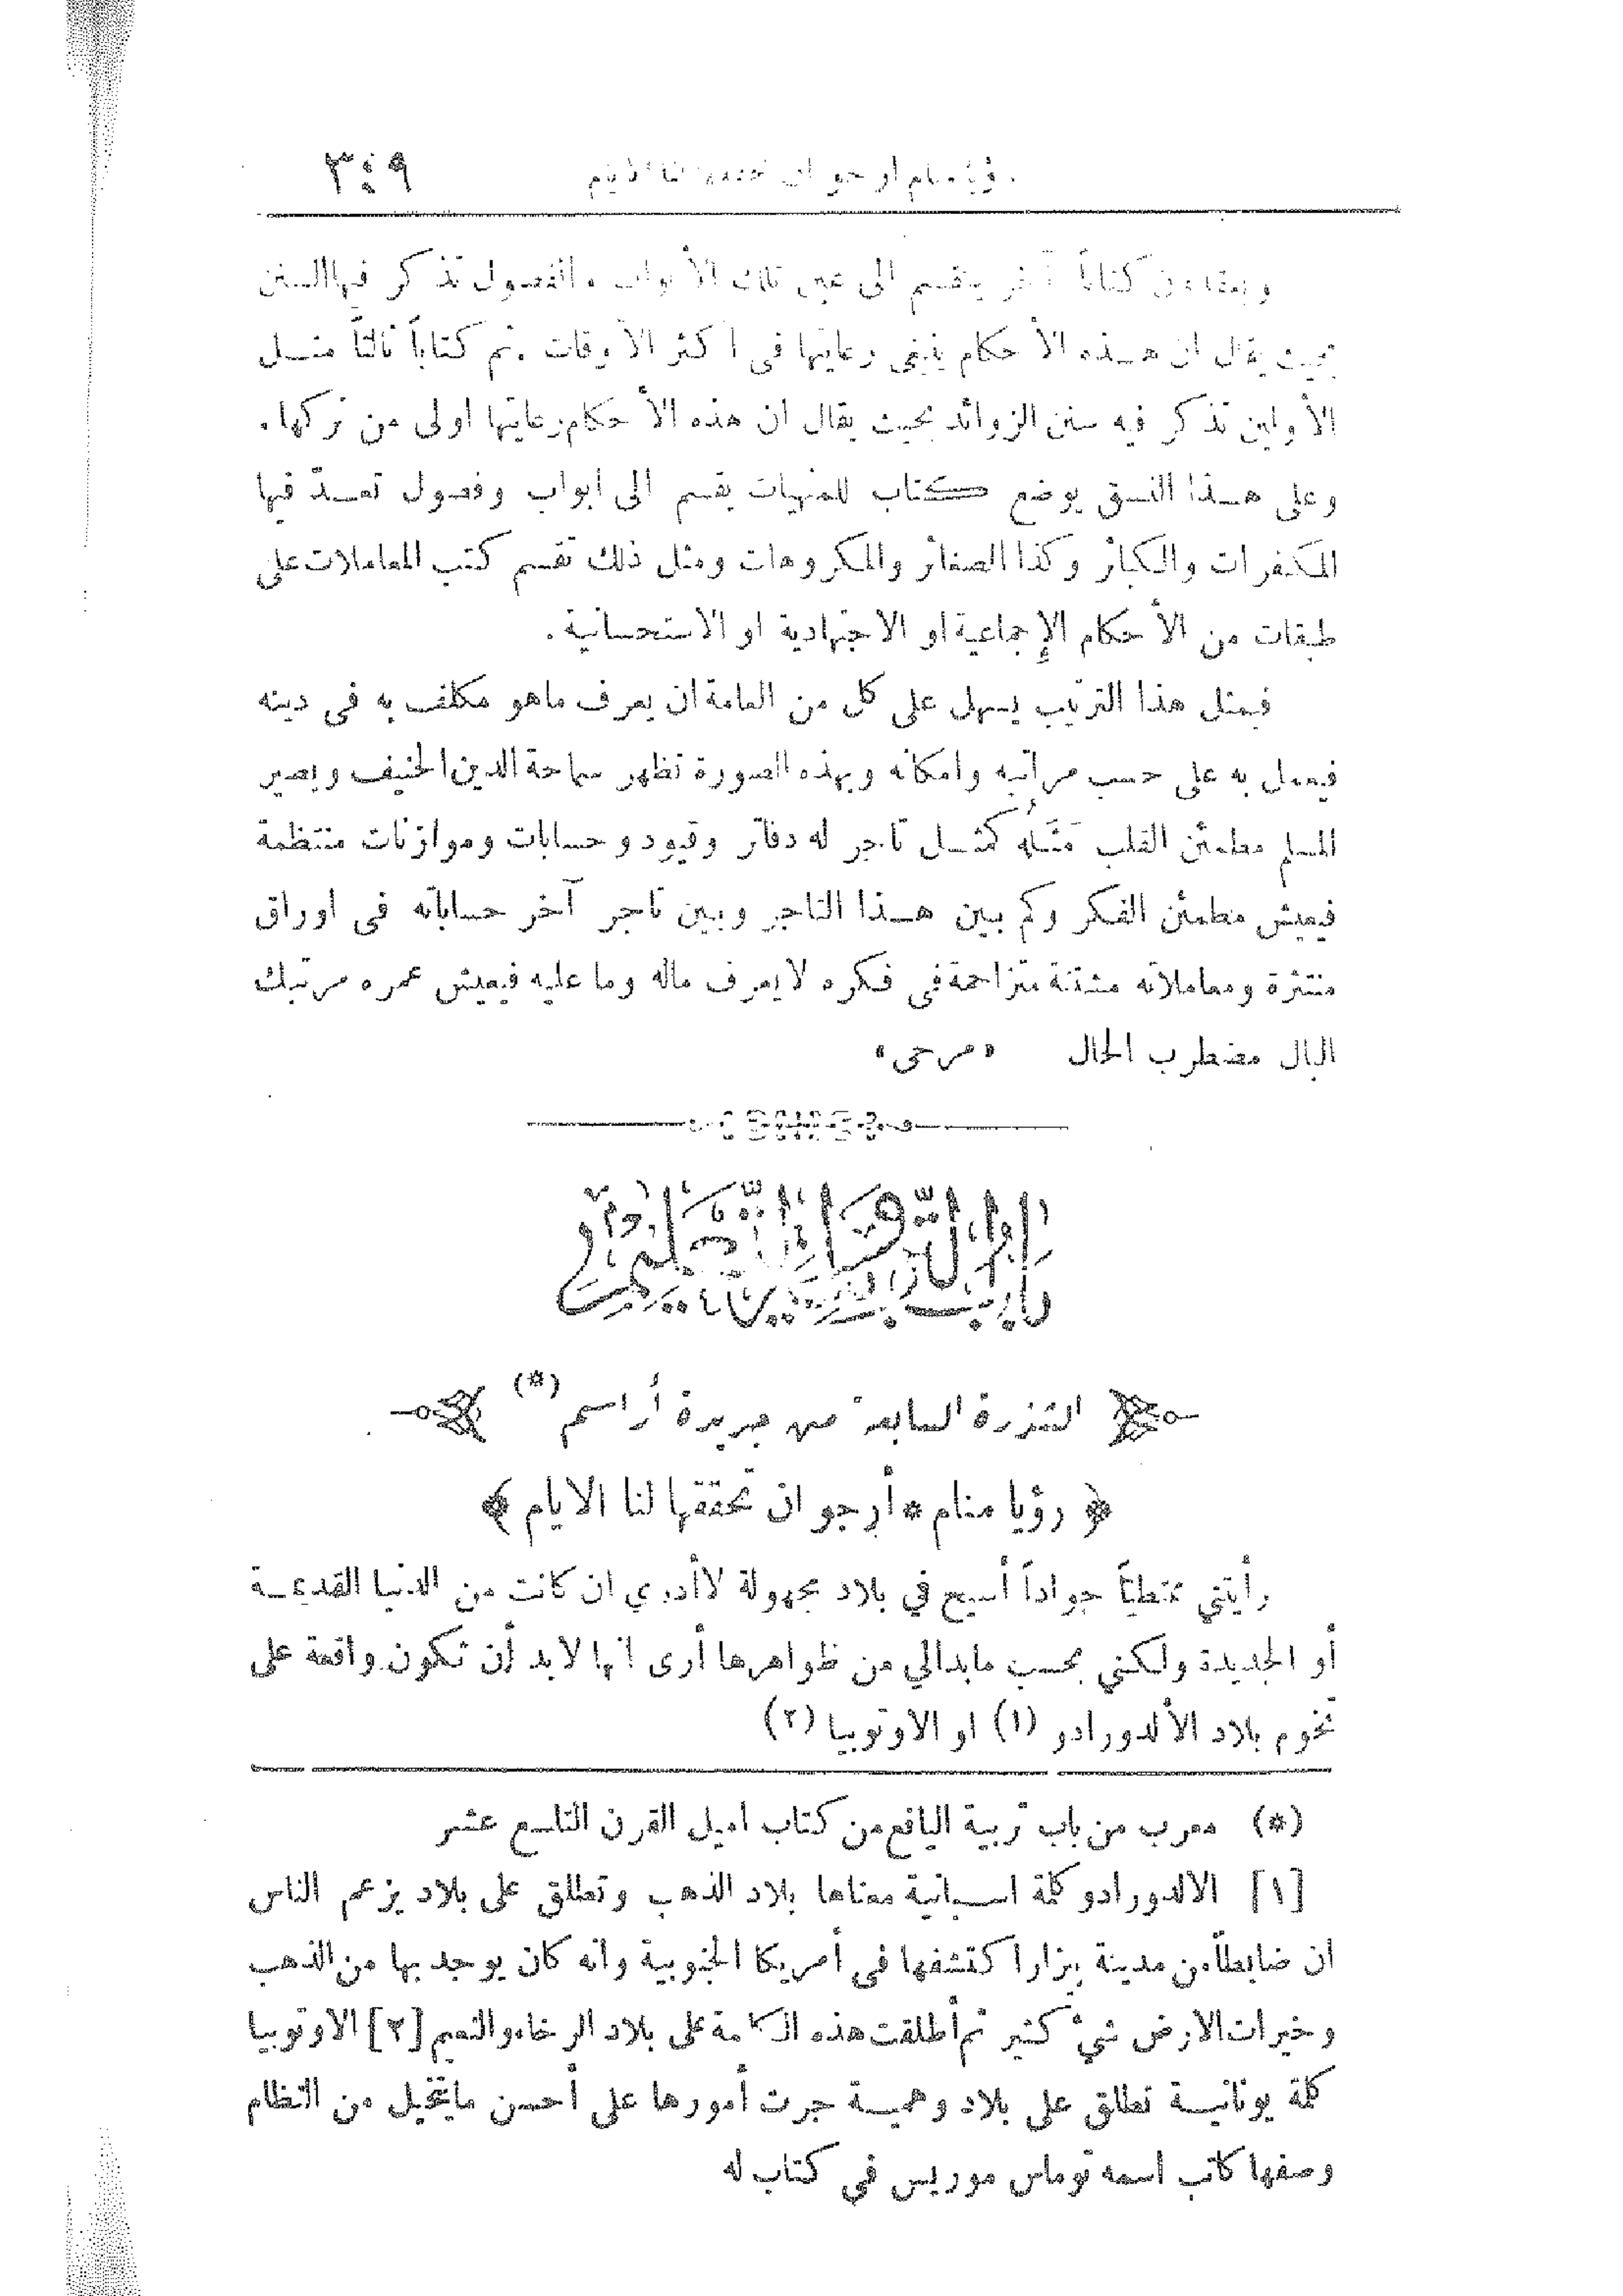 رؤيا منام ارجو ان تحققها لنا الايام ٣٤٩
ويعقدون كتاباً آخر ينقسم الى عين تلك الأبواب والفصول تذكر فيها السنن
بحيث يقال ان هــذه الأحكام ينبغي رعايتها في أكثر الأوقات . ثم كتاباً ثالثاً مثــل
الأولين تذكر فيه سنن الزوائد بحيث يقال ان هذه الأحكام رعايتها اولى من تركها .
وعلى هــذا النسق يوضع كتاب للمنهيات يقسم الى أبواب وفصول تعــدّ فيها
المكفرات والكبائر وكذا الصغائر والمكروهات ومثل ذلك تقسم كتب المعاملات على
طبقات من الأحكام الإجماعية او الاجتهادية او الاستحسانية .
فبمثل هذا الترتيب يسهل على كل من العامة ان يعرف ماهو مكلف به في دينه
فيعمل به على حسب مراتبه وامكانه وبهذه الصورة تظهر سماحة الدين الحنيف ويصير
المسلم مطمئن القلب مَثَلُه كمثــل تاجر له دفاتر وقيود وحسابات وموازنات منتظمة
فيعيش مطمئن الفكر وكم بين هــذا التاجر وبين تاجر آخر حساباته في اوراق
منتثرة ومعاملاته مشتتة متزاحمة في فكره لايعرف ماله وما عليه فيعيش عمره مرتبك
البال مضطرب الحال «مرحى»
الشذرة السابعة من جريدة أراسم (*)
﴿ رؤيا منام * أرجو ان تحققها لنا الايام ﴾
رأيتني ممتطياً جواداً أسيح في بلاد مجهولة لاأدري ان كانت من الدنيا القديمــة
أو الجديدة ولكني بحسب مابدالي من ظواهرها أرى انها لابد أن تكون واقعة على
تخوم بلاد الألدورادو (١) او الاوتوبيا (٢)
(*) معرب من باب تربية اليافع من كتاب اميل القرن التاسع عشر
[١] الالدورادو كلمة اسبانية معناها بلاد الذهب وتطلق على بلاد يزعم الناس
ان ضابطاً من مدينة بيزارا كتشفها في أمريكا الجنوبية وانه كان يوجد بها من الذهب
وخيرات الارض شيءٌ كثير ثم أطلقت هذه الكلمة على بلاد الرخاء والنعيم [٢] الاوتوبيا
كلمة يونانيــة تطلق على بلاد وهميــة جرت أمورها على أحسن مايتخيل من النظام
وصفها كاتب اسمه توماس موريس في كتاب له